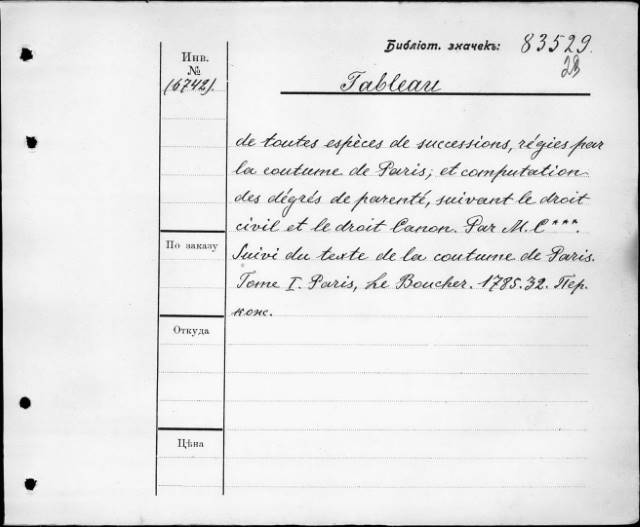 Библіот. значекъ: 83529.
Инв.
№
(6742).
Tableau
de toutes espèces de successions, régies par
la coutume de Paris; et computation
des dégrés de parenté, suivant le droit
civil et le droit Canon. Par M. C***.
Suivi du texte de la coutume de Paris.
Tome I. Paris, Le Boucher. 1785. 32. Пер.
кож.
По заказу
Откуда
Цѣна